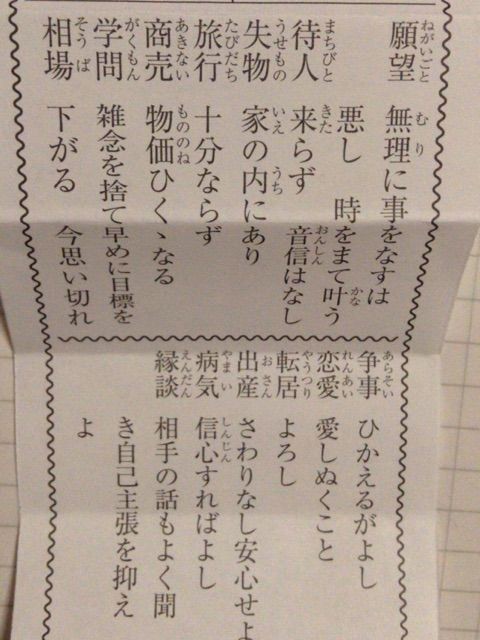 願望　無理に事をなすは
悪し　時をまて叶う
待人　来らず　音信はなし
失物　家の内にあり
旅行　十分ならず
商売　物価ひくゝなる
学問　雑念を捨て早めに目標を
相場　下がる　今思い切れ
争事　ひかえるがよし
恋愛　愛しぬくこと
転居　よろし
出産　さわりなし安心せよ
病気　信心すればよし
縁談　相手の話もよく聞
き自己主張を抑え
よ